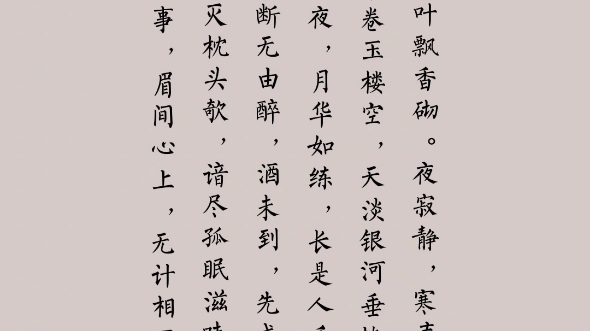 叶飘香砌。夜寂静，寒
卷玉楼空，天淡银河垂
夜，月华如练，长是人
断无由醉，酒未到，先
灭枕头欹，谙尽孤眠滋
事，眉间心上，无计相